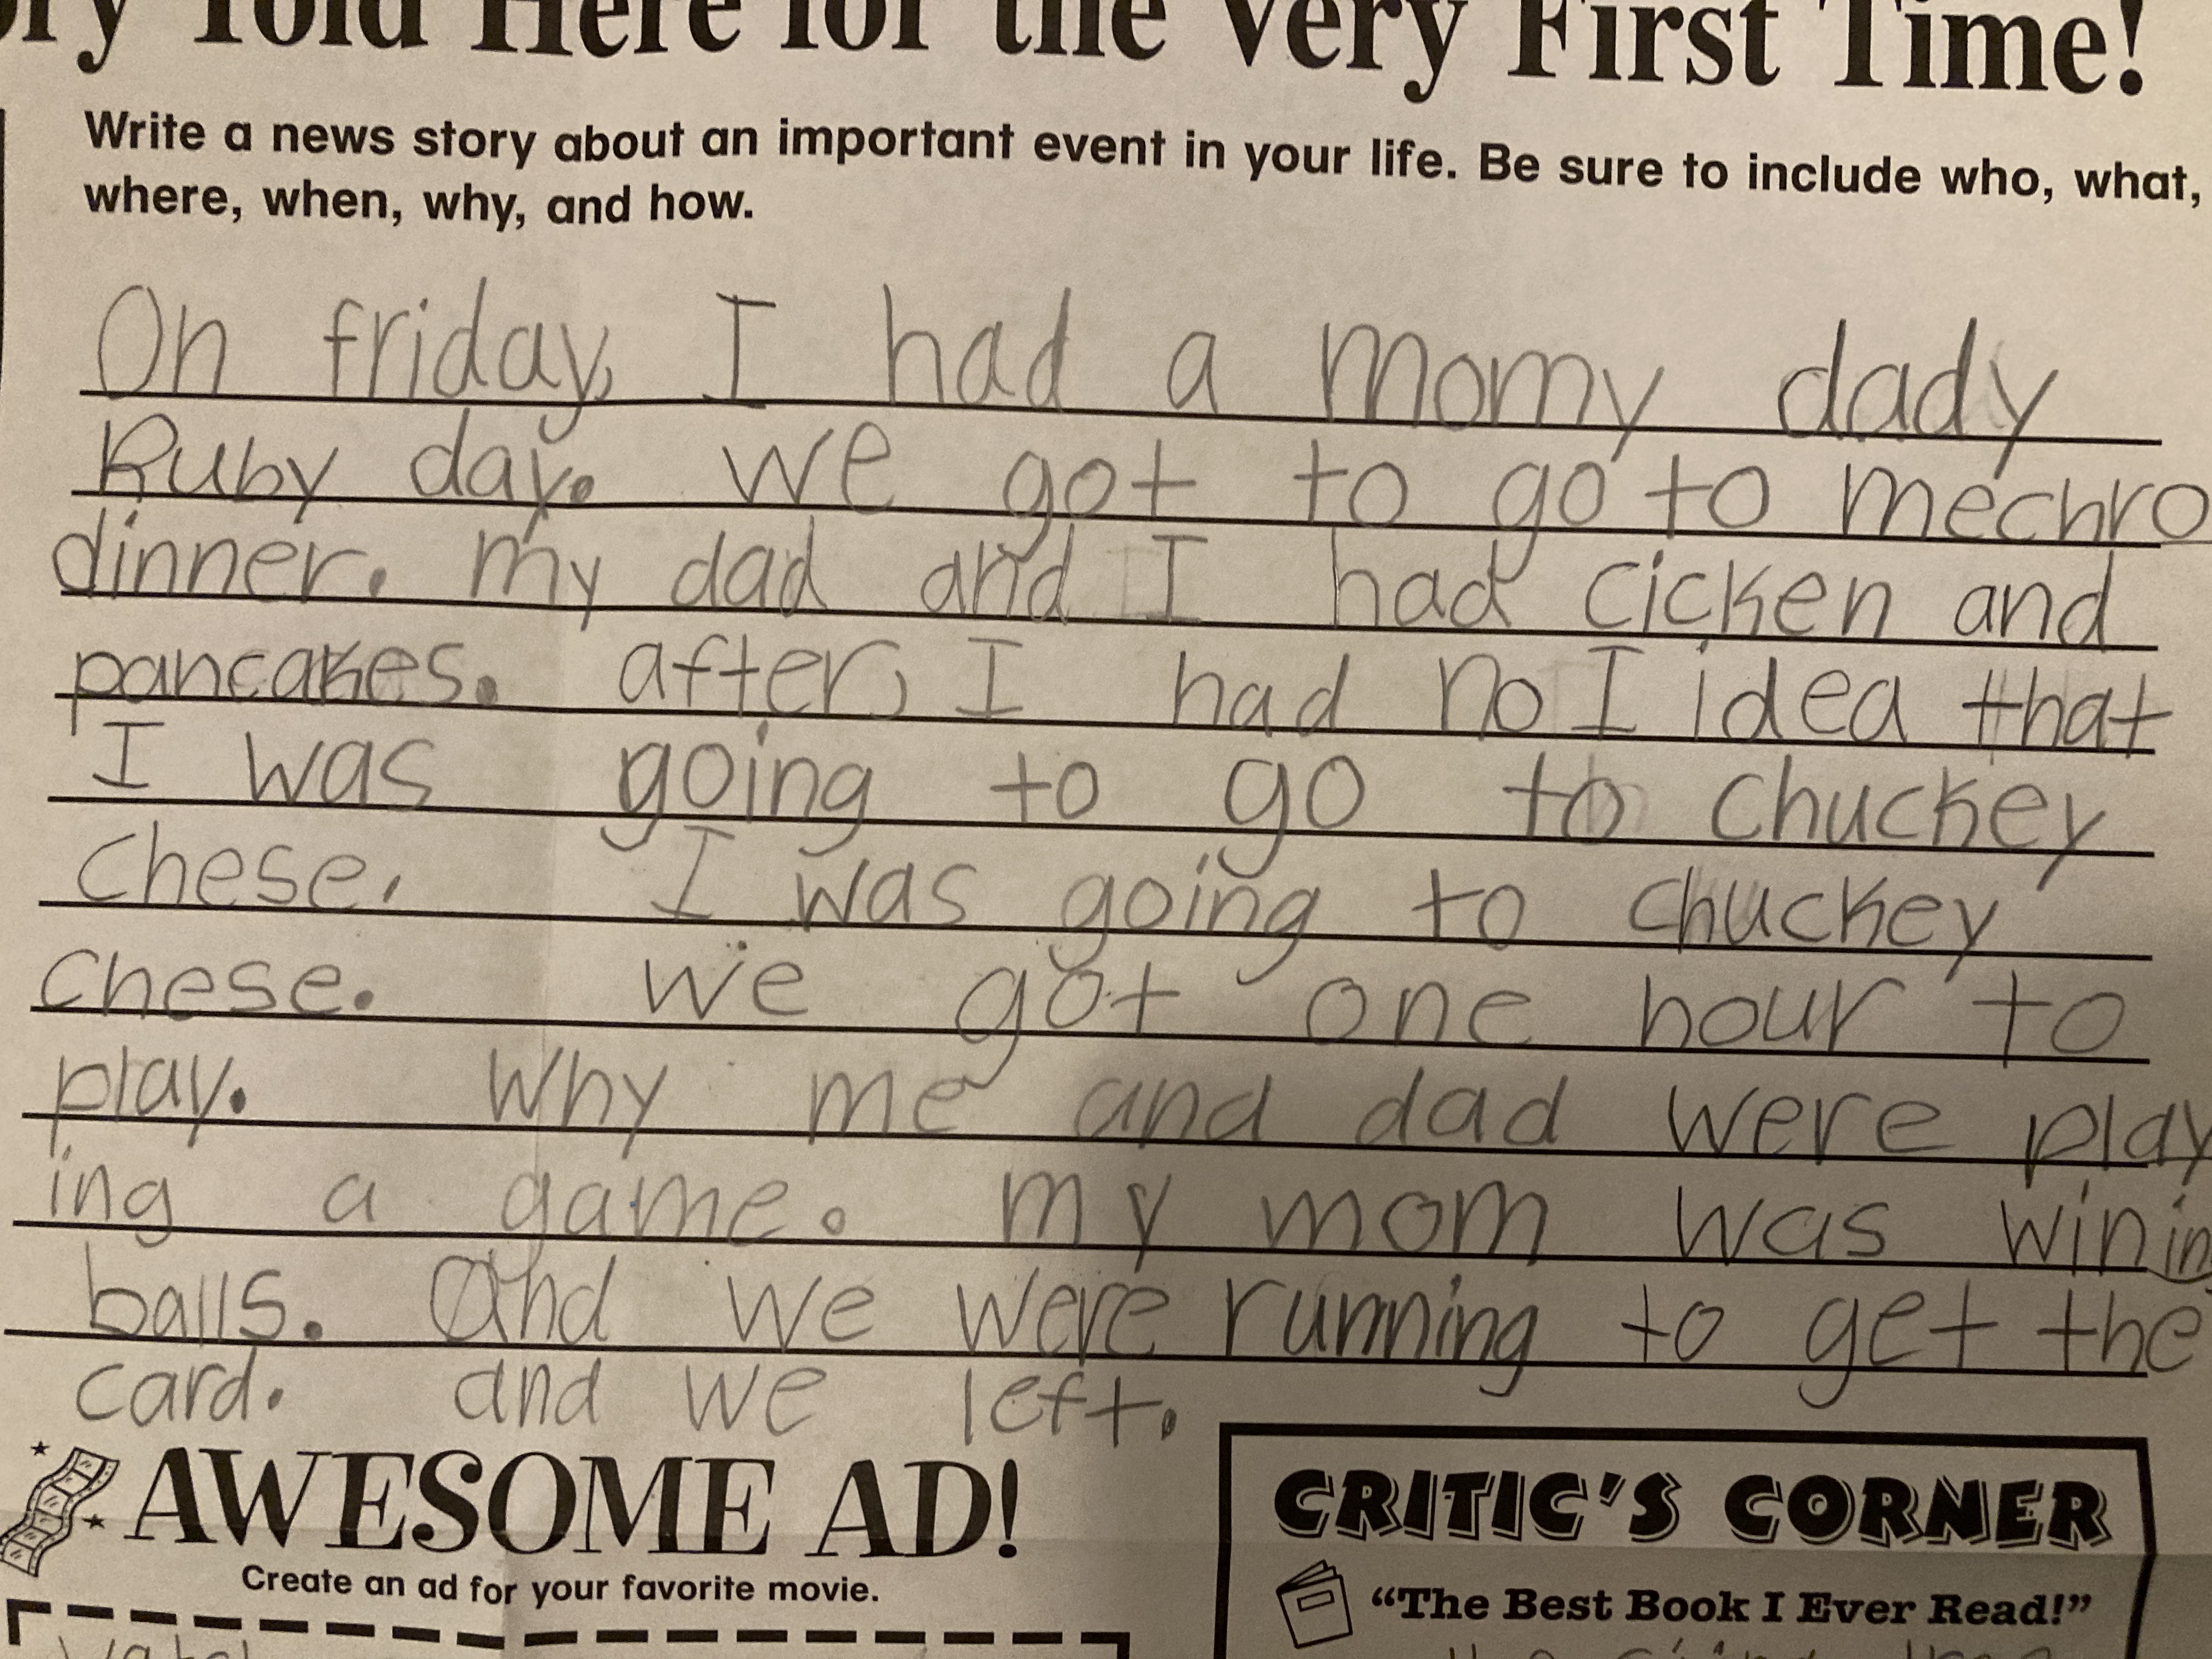 ory Told Here for the Very First Time!
Write a news story about an important event in your life. Be sure to include who, what,
where, when, why, and how.
On friday, I had a momy dady
Ruby day. we got to go to mechro
dinner. my dad and I had cicken and
pancakes. after, I had no I idea that
I was going to go to chuckey
chese. I was going to chuckey
chese. we got one hour to
play. Why me and dad were play
ing a game. my mom was wining
balls. And we were running to get the
card. and we left.
AWESOME AD!
Create an ad for your favorite movie.
CRITIC'S CORNER
“The Best Book I Ever Read!”